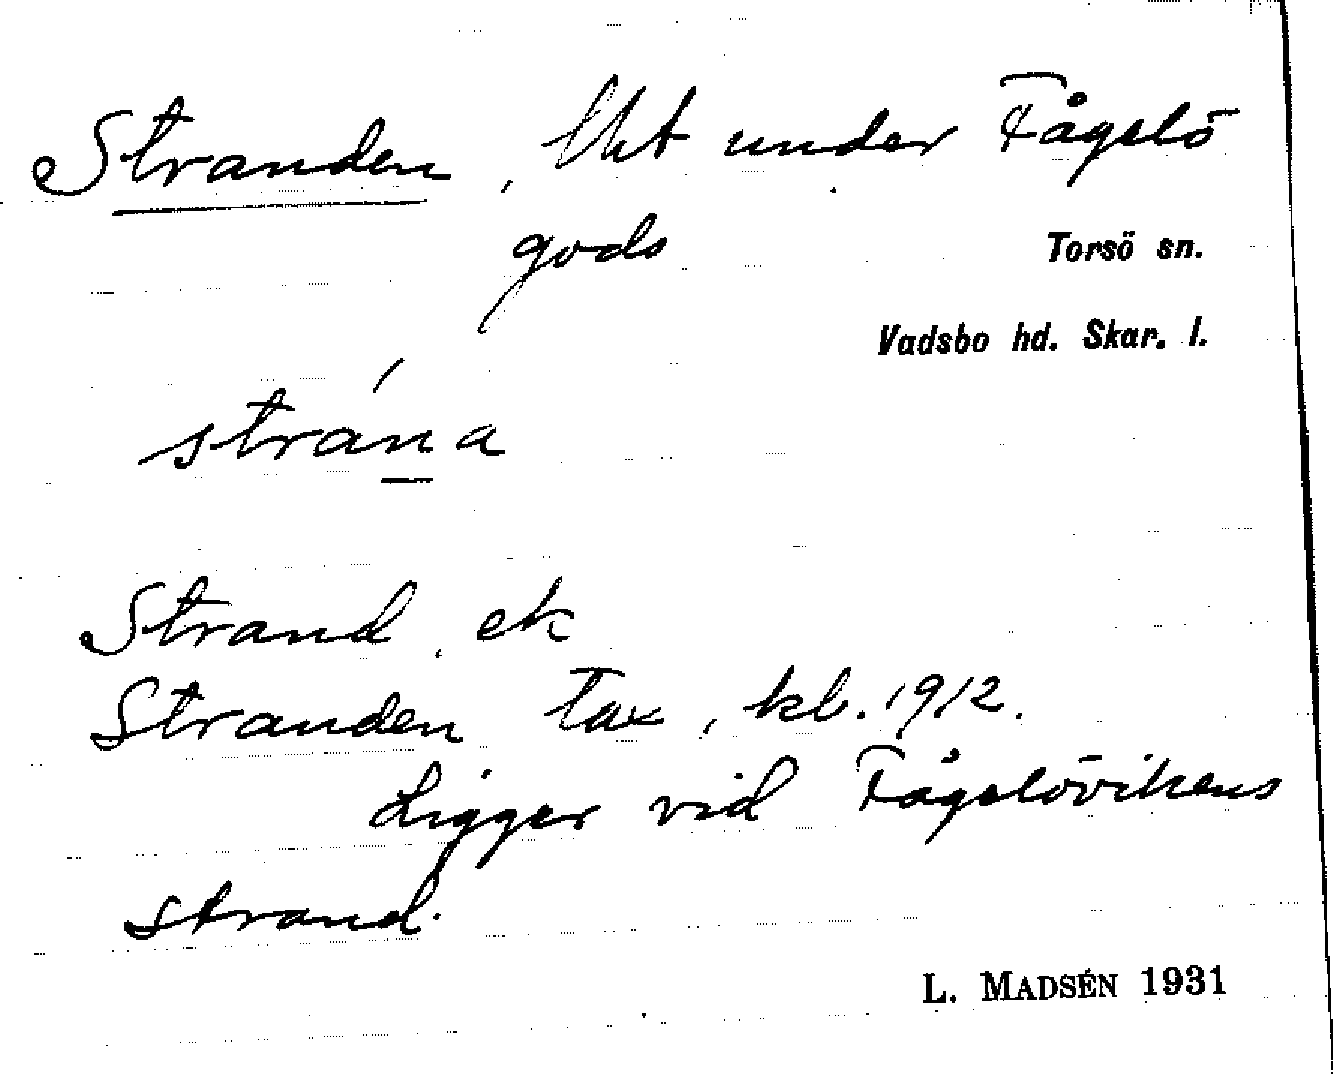 Stranden, lht under Fågelö
gods
Torsö sn.
Vadsbo hd. Skar. l.
strána
Strand, ek
Stranden Tax, kl. 1912.
Ligger vid Fågelövikens
strand.
L. MADSÉN 1931